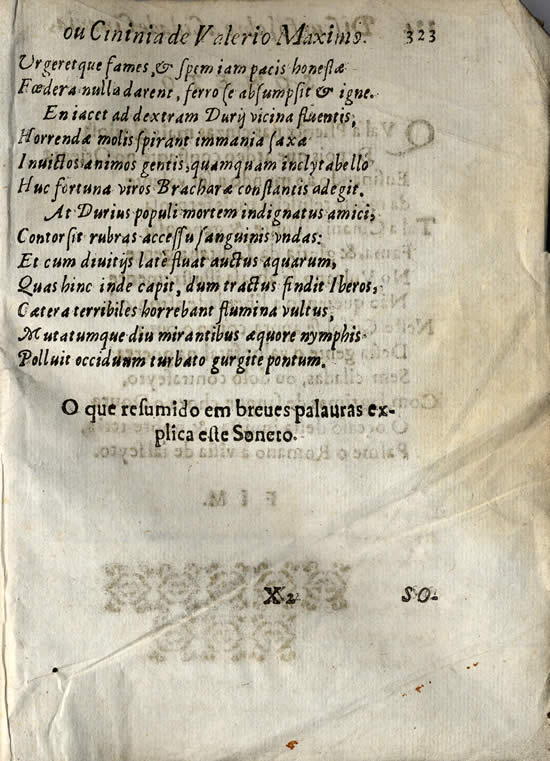 ou Cininia de Valerio Maximo. 323
Vrgeretque fames, & spem iam pacis honestæ
Fœdera nulla darent, ferro se absumpsit & igne.
En iacet ad dextram Durij vicina fluentis,
Horrendæ molis spirant immania saxa
Inuictos animos gentis, quamquam inclyta bello
Huc fortuna viros Bracharæ constantis adegit.
At Durius populi mortem indignatus amici,
Contorsit rubras accessu sanguinis vndas:
Et cum diuitijs latè fluat auctus aquarum,
Quas hinc inde capit, dum tractus findit Iberos,
Cætera terribiles horrebant flumina vultus,
Mutatumque diu mirantibus æquore nymphis
Polluit occiduum turbato gurgite pontum.
O que resumido em breues palauras ex-
plica este Soneto.
X2 SO-